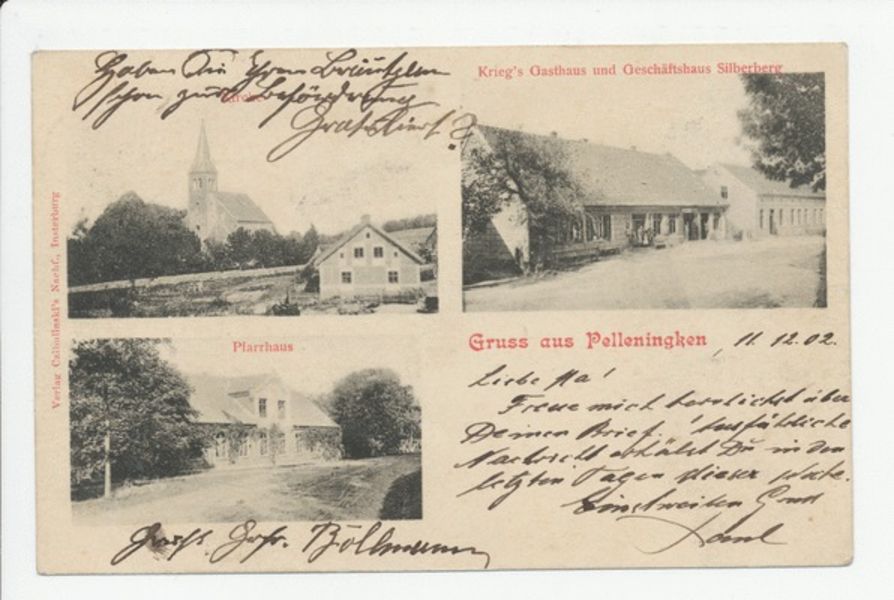 Haben Sie Ihren Bräutgam
schon zur Beförderung
Gratuliert?
Kirche
Krieg's Gasthaus und Geschäftshaus Silberberg
Verlag Czibulinski's Nachf., Insterburg
Pfarrhaus
Gruss aus Pelleningken
11.12.02.
Liebe
Freue mich herzlichst über
Deinen Brief. Ausführliche
Nachricht erhälst Du in den
letzten Tagen dieser
Einstweilen Gruß
Paul
Böllmann